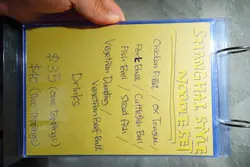 SHANGHAI STYLE
NOODLE SET
Chicken Fillet / Ox Tongue
/ Cuttlefish Ball /
Fish Ball / Shred Fish /
Vegetrian Dumpling
Vegetrian Beef Ball
Drinks
$35 (one toppings)
$40 (two toppings)